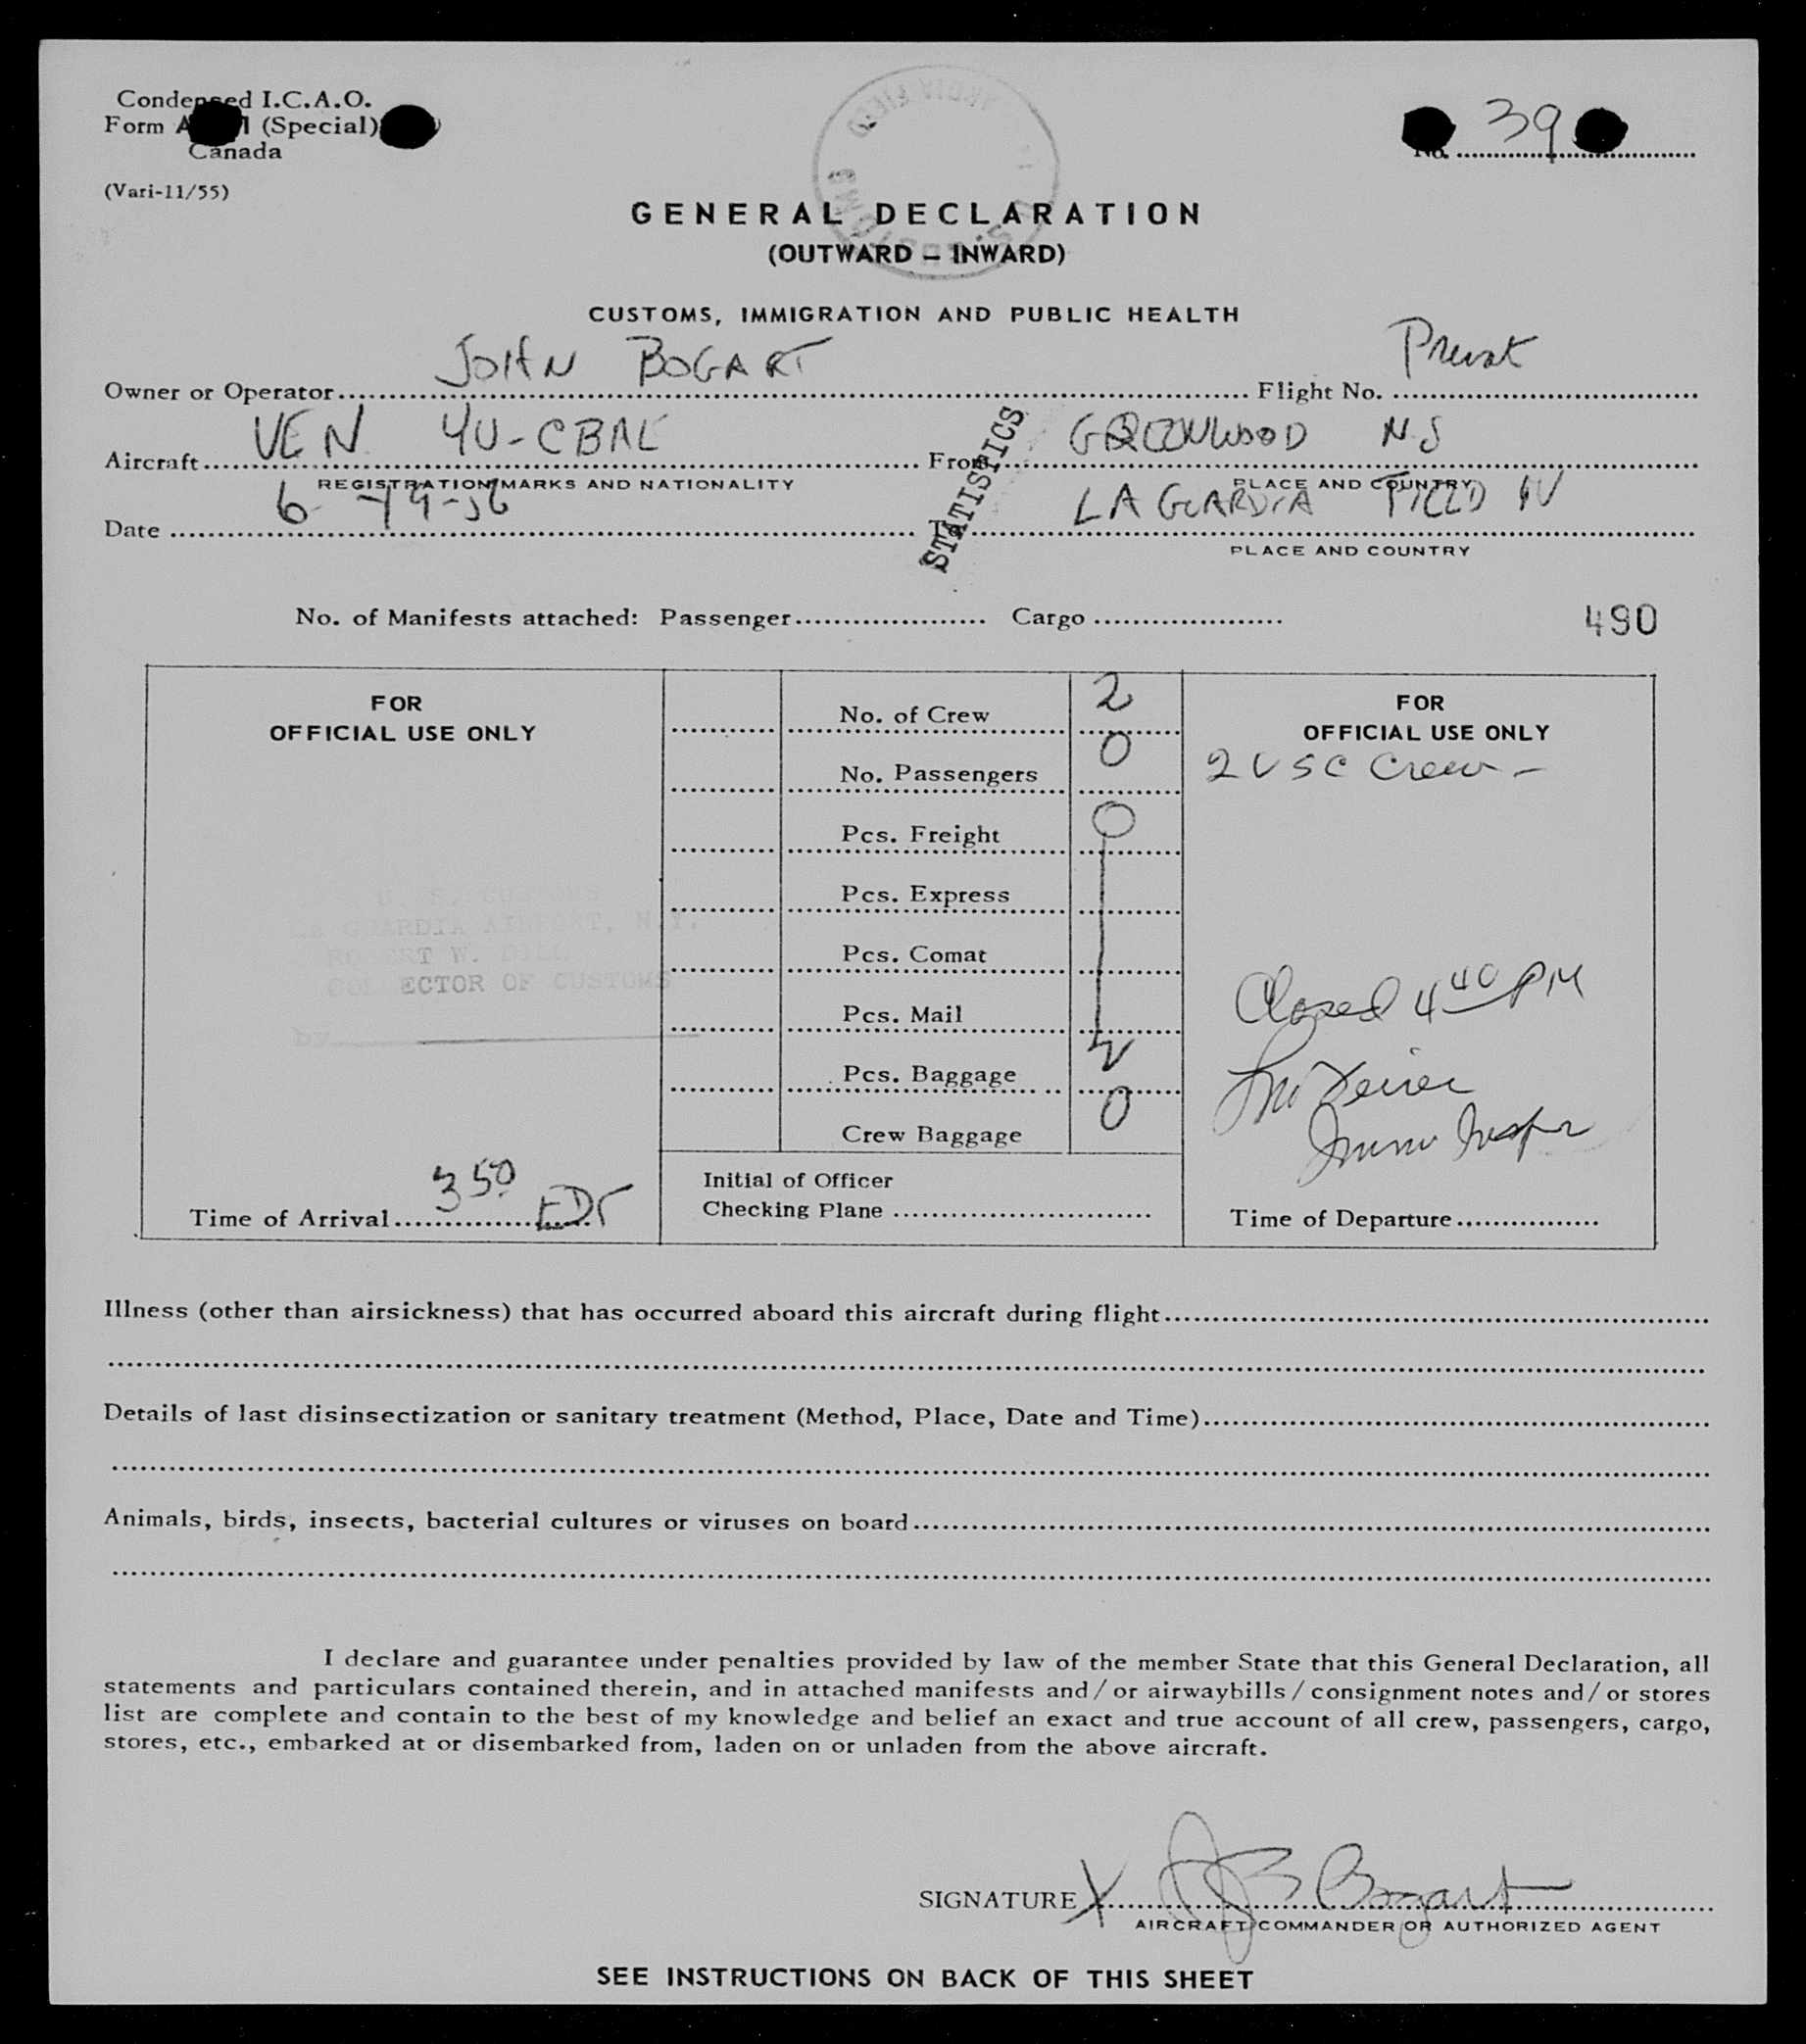 Condensed I.C.A.O.
Form A 1 (Special)
Canada
(Vari-11/55)
No. 39
GENERAL DECLARATION
(OUTWARD – INWARD)
CUSTOMS, IMMIGRATION AND PUBLIC HEALTH
Owner or Operator JOHN BOGART Flight No. Privat
Aircraft VEN YU-CBAL From GREENWOOD N.S
REGISTRATION MARKS AND NATIONALITY PLACE AND COUNTRY
Date 6-19-56 To LA GUARDIA FIELD
PLACE AND COUNTRY
STATISTICS
No. of Manifests attached: Passenger Cargo
490
FOR
OFFICIAL USE ONLY
U. S. CUSTOMS
La GUARDIA AIRPORT, N.Y.
ROBERT W. DILL
COLLECTOR OF CUSTOMS
by
Time of Arrival 3 50 EDT
No. of Crew 2
No. Passengers 0
Pcs. Freight 0
Pcs. Express
Pcs. Comat
Pcs. Mail
Pcs. Baggage
Crew Baggage 0
Initial of Officer
Checking Plane
FOR
OFFICIAL USE ONLY
2 USC Crew -
Closed 4 40 PM
Imm Inspr
Time of Departure
Illness (other than airsickness) that has occurred aboard this aircraft during flight
Details of last disinsectization or sanitary treatment (Method, Place, Date and Time)
Animals, birds, insects, bacterial cultures or viruses on board
I declare and guarantee under penalties provided by law of the member State that this General Declaration, all
statements and particulars contained therein, and in attached manifests and/or airwaybills/consignment notes and/or stores
list are complete and contain to the best of my knowledge and belief an exact and true account of all crew, passengers, cargo,
stores, etc., embarked at or disembarked from, laden on or unladen from the above aircraft.
SIGNATURE X J B Bogart
AIRCRAFT COMMANDER OR AUTHORIZED AGENT
SEE INSTRUCTIONS ON BACK OF THIS SHEET